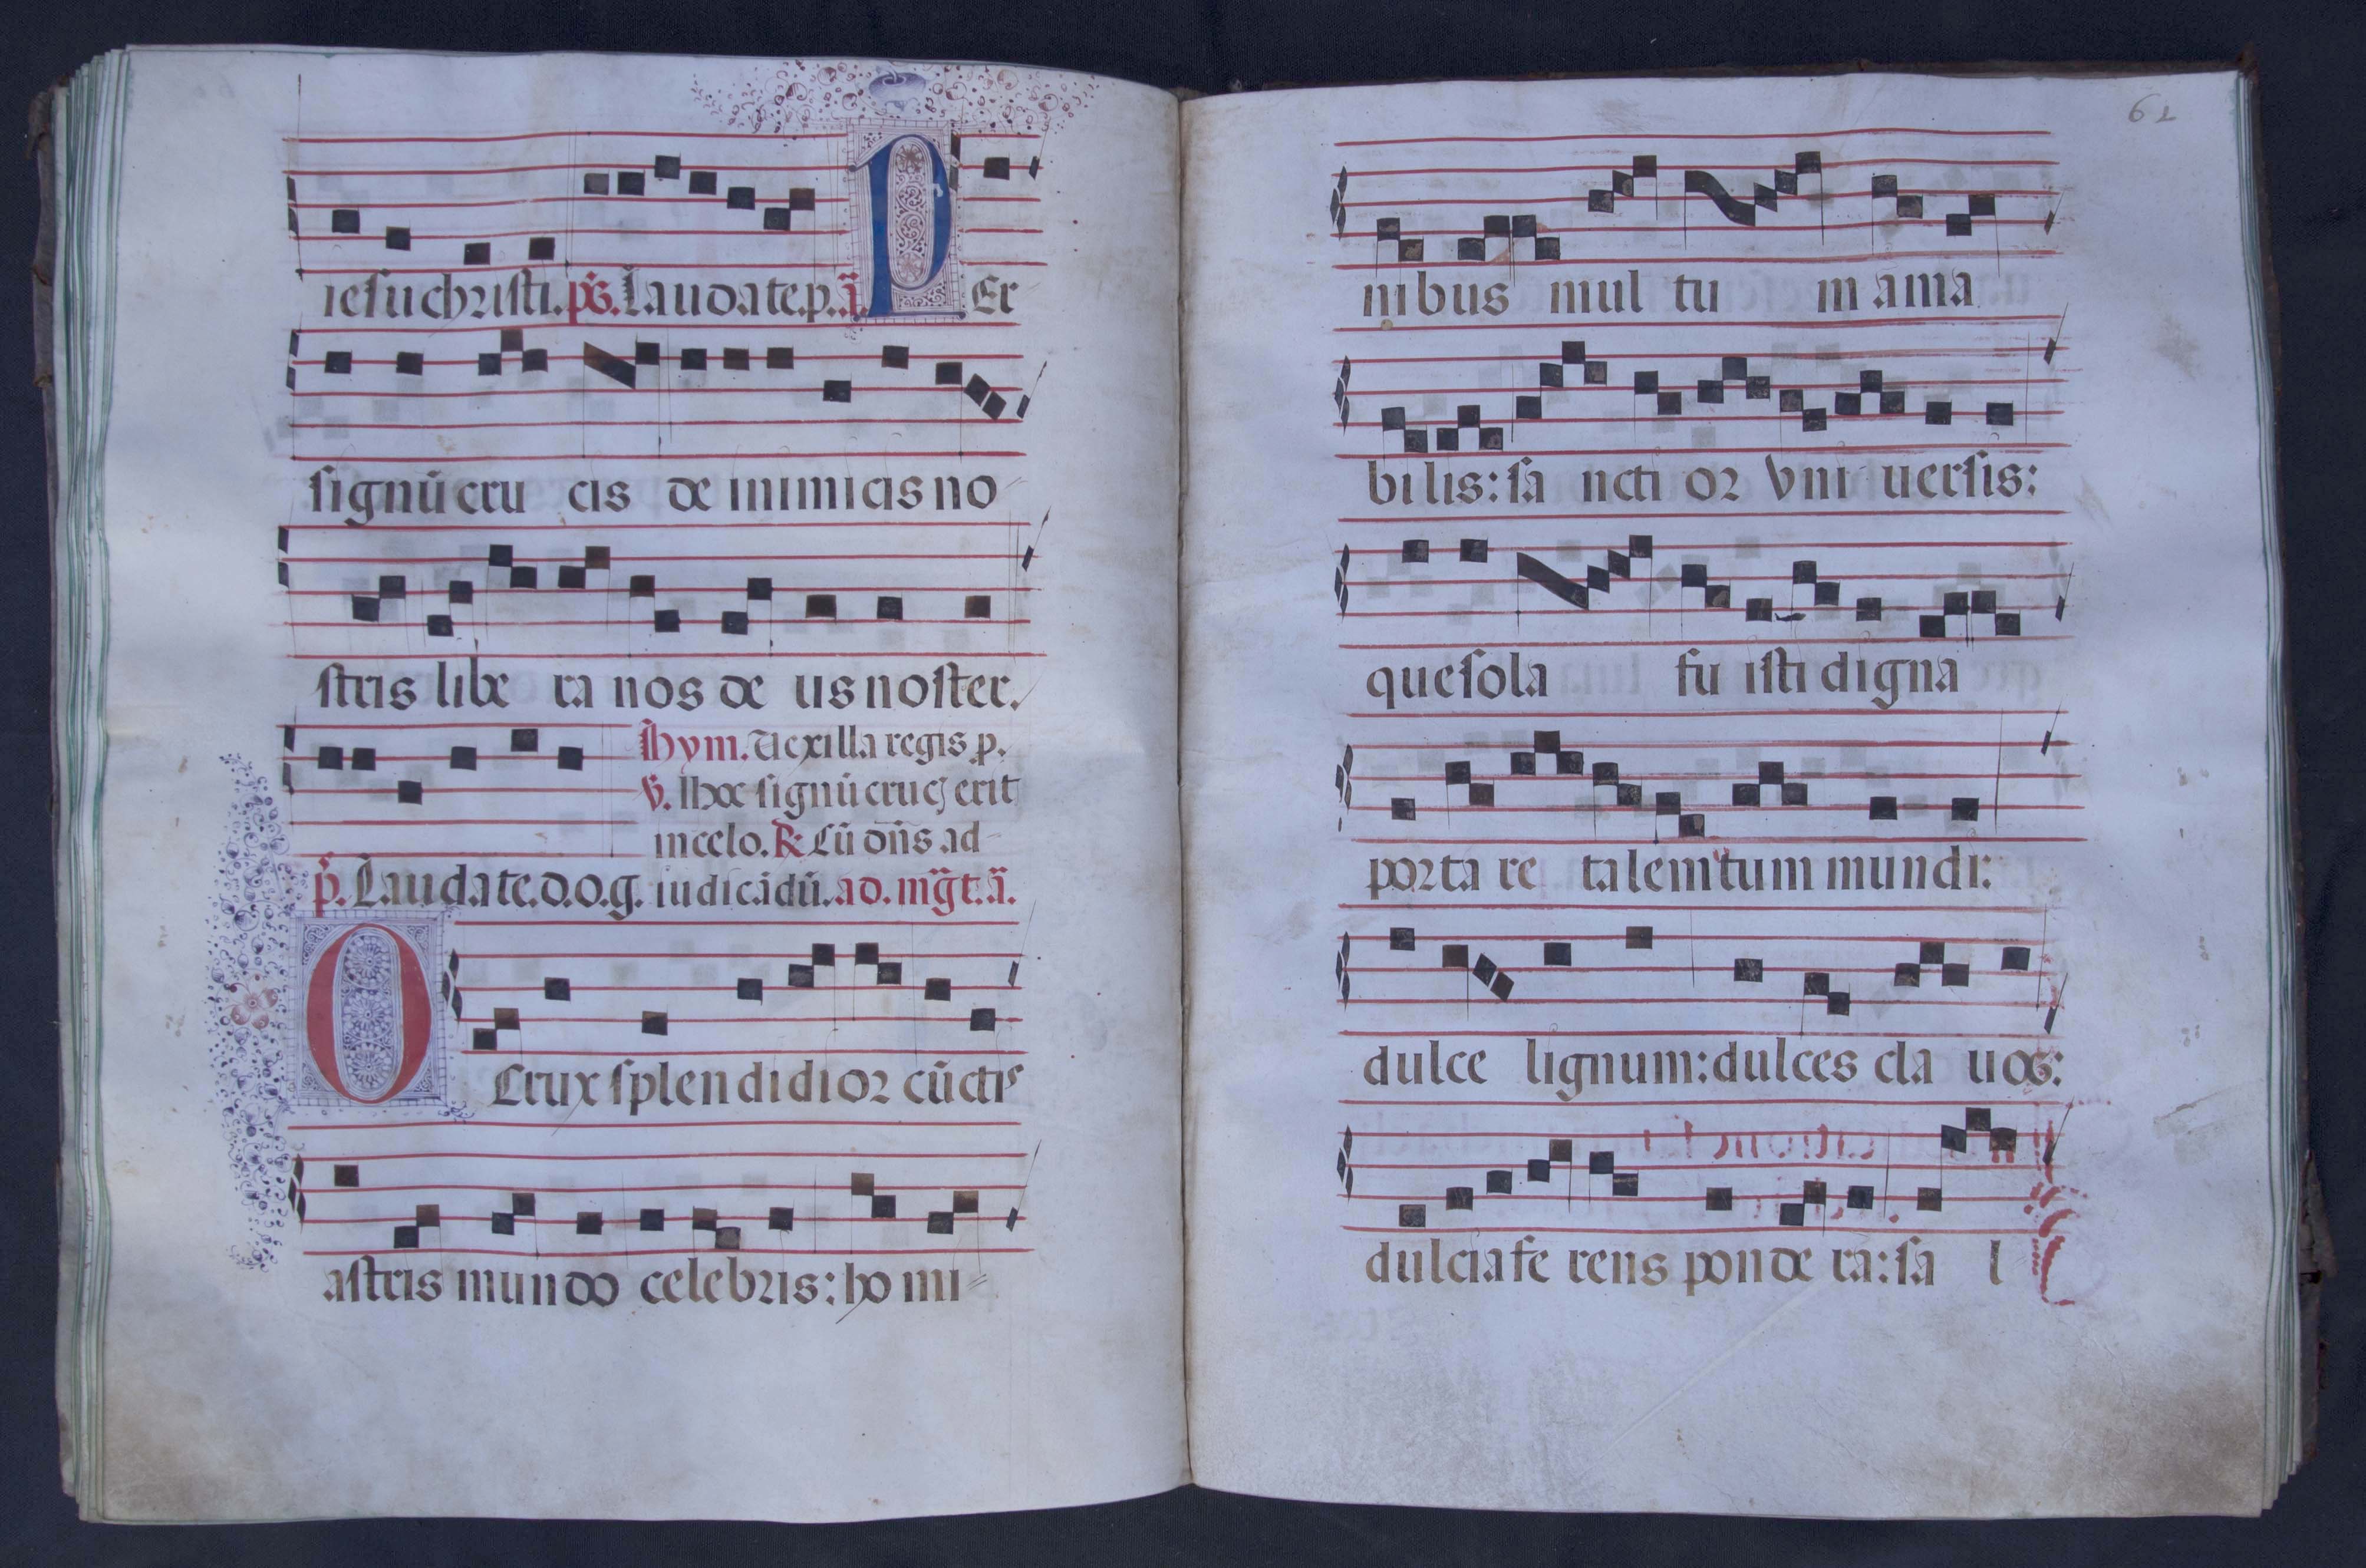 iesu christi. ps. Laudate.p. ā. P Er
signū cru cis de inimicis no
stris libe ra nos de us noster.
hym. Vexilla regis p.
V. Hoc signū crucꝭ erit
in celo. R Cū dn̄s ad
p. Laudate.d.o.g. iudicādū. ad. mg̅t. ā.
O Crux splen didior cūctis
astris mundo celebris: ho mi
62
nibus mul tu m ama
bilis: sa ncti or vni uersis:
que sola fu isti digna
porta re talentum mundi:
dulce lignum: dulces cla uos:
dulcia fe rens ponde ra: sa l